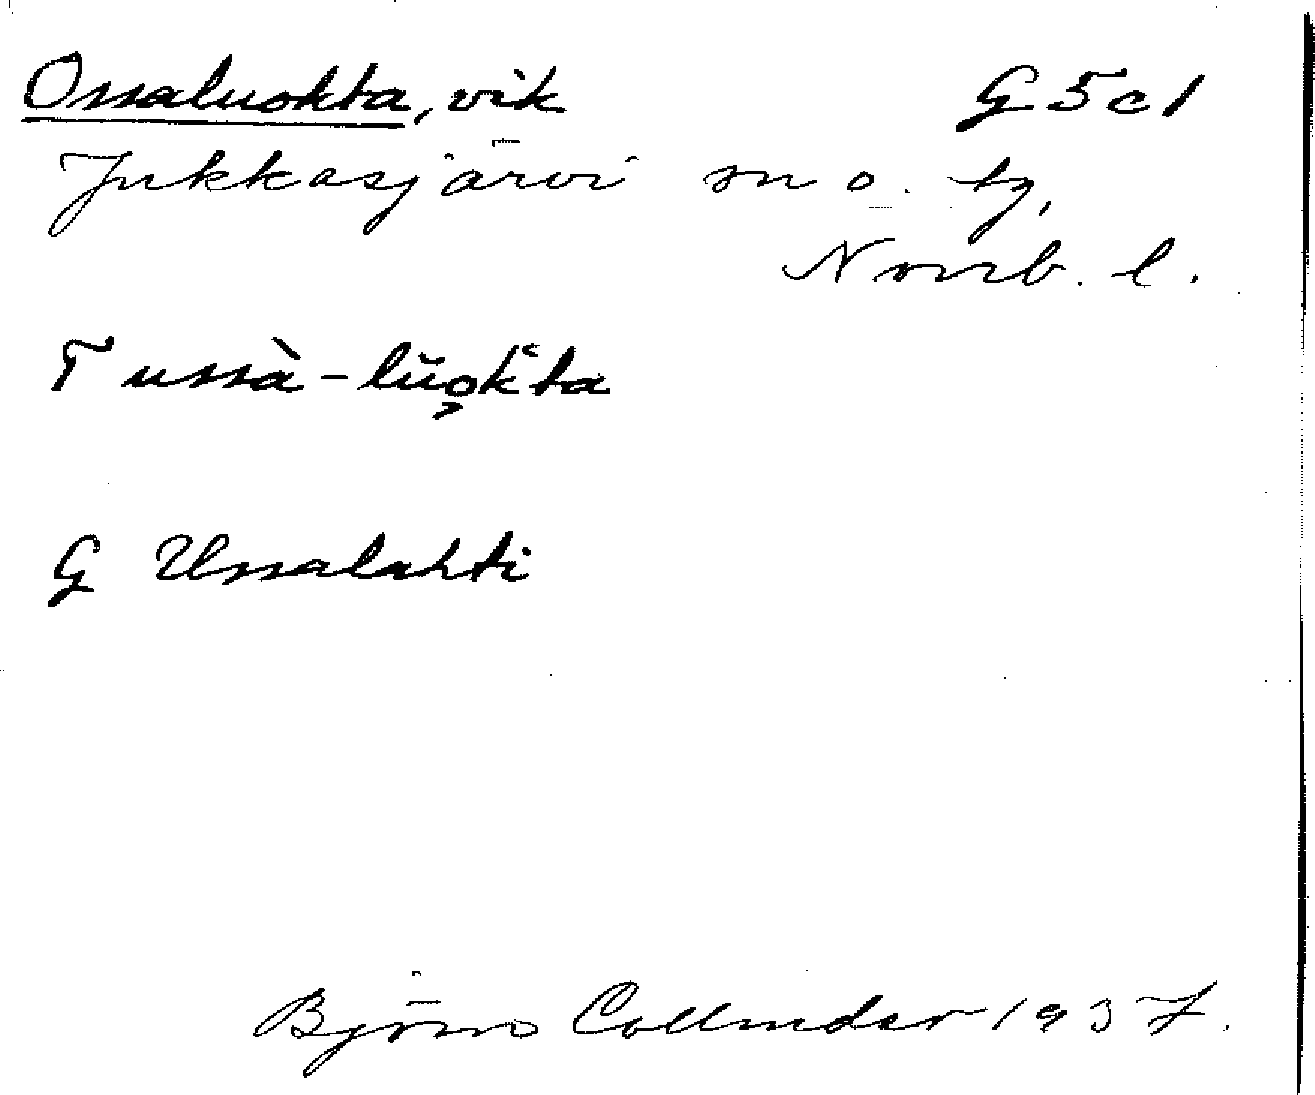 Ossaluokta, vik G5c1
Jukkasjärvi sn o. tg,
Norrb. l.
T ussà-lŭo̧k‘ta
G Ussalahti
Björn Collinder 1937.